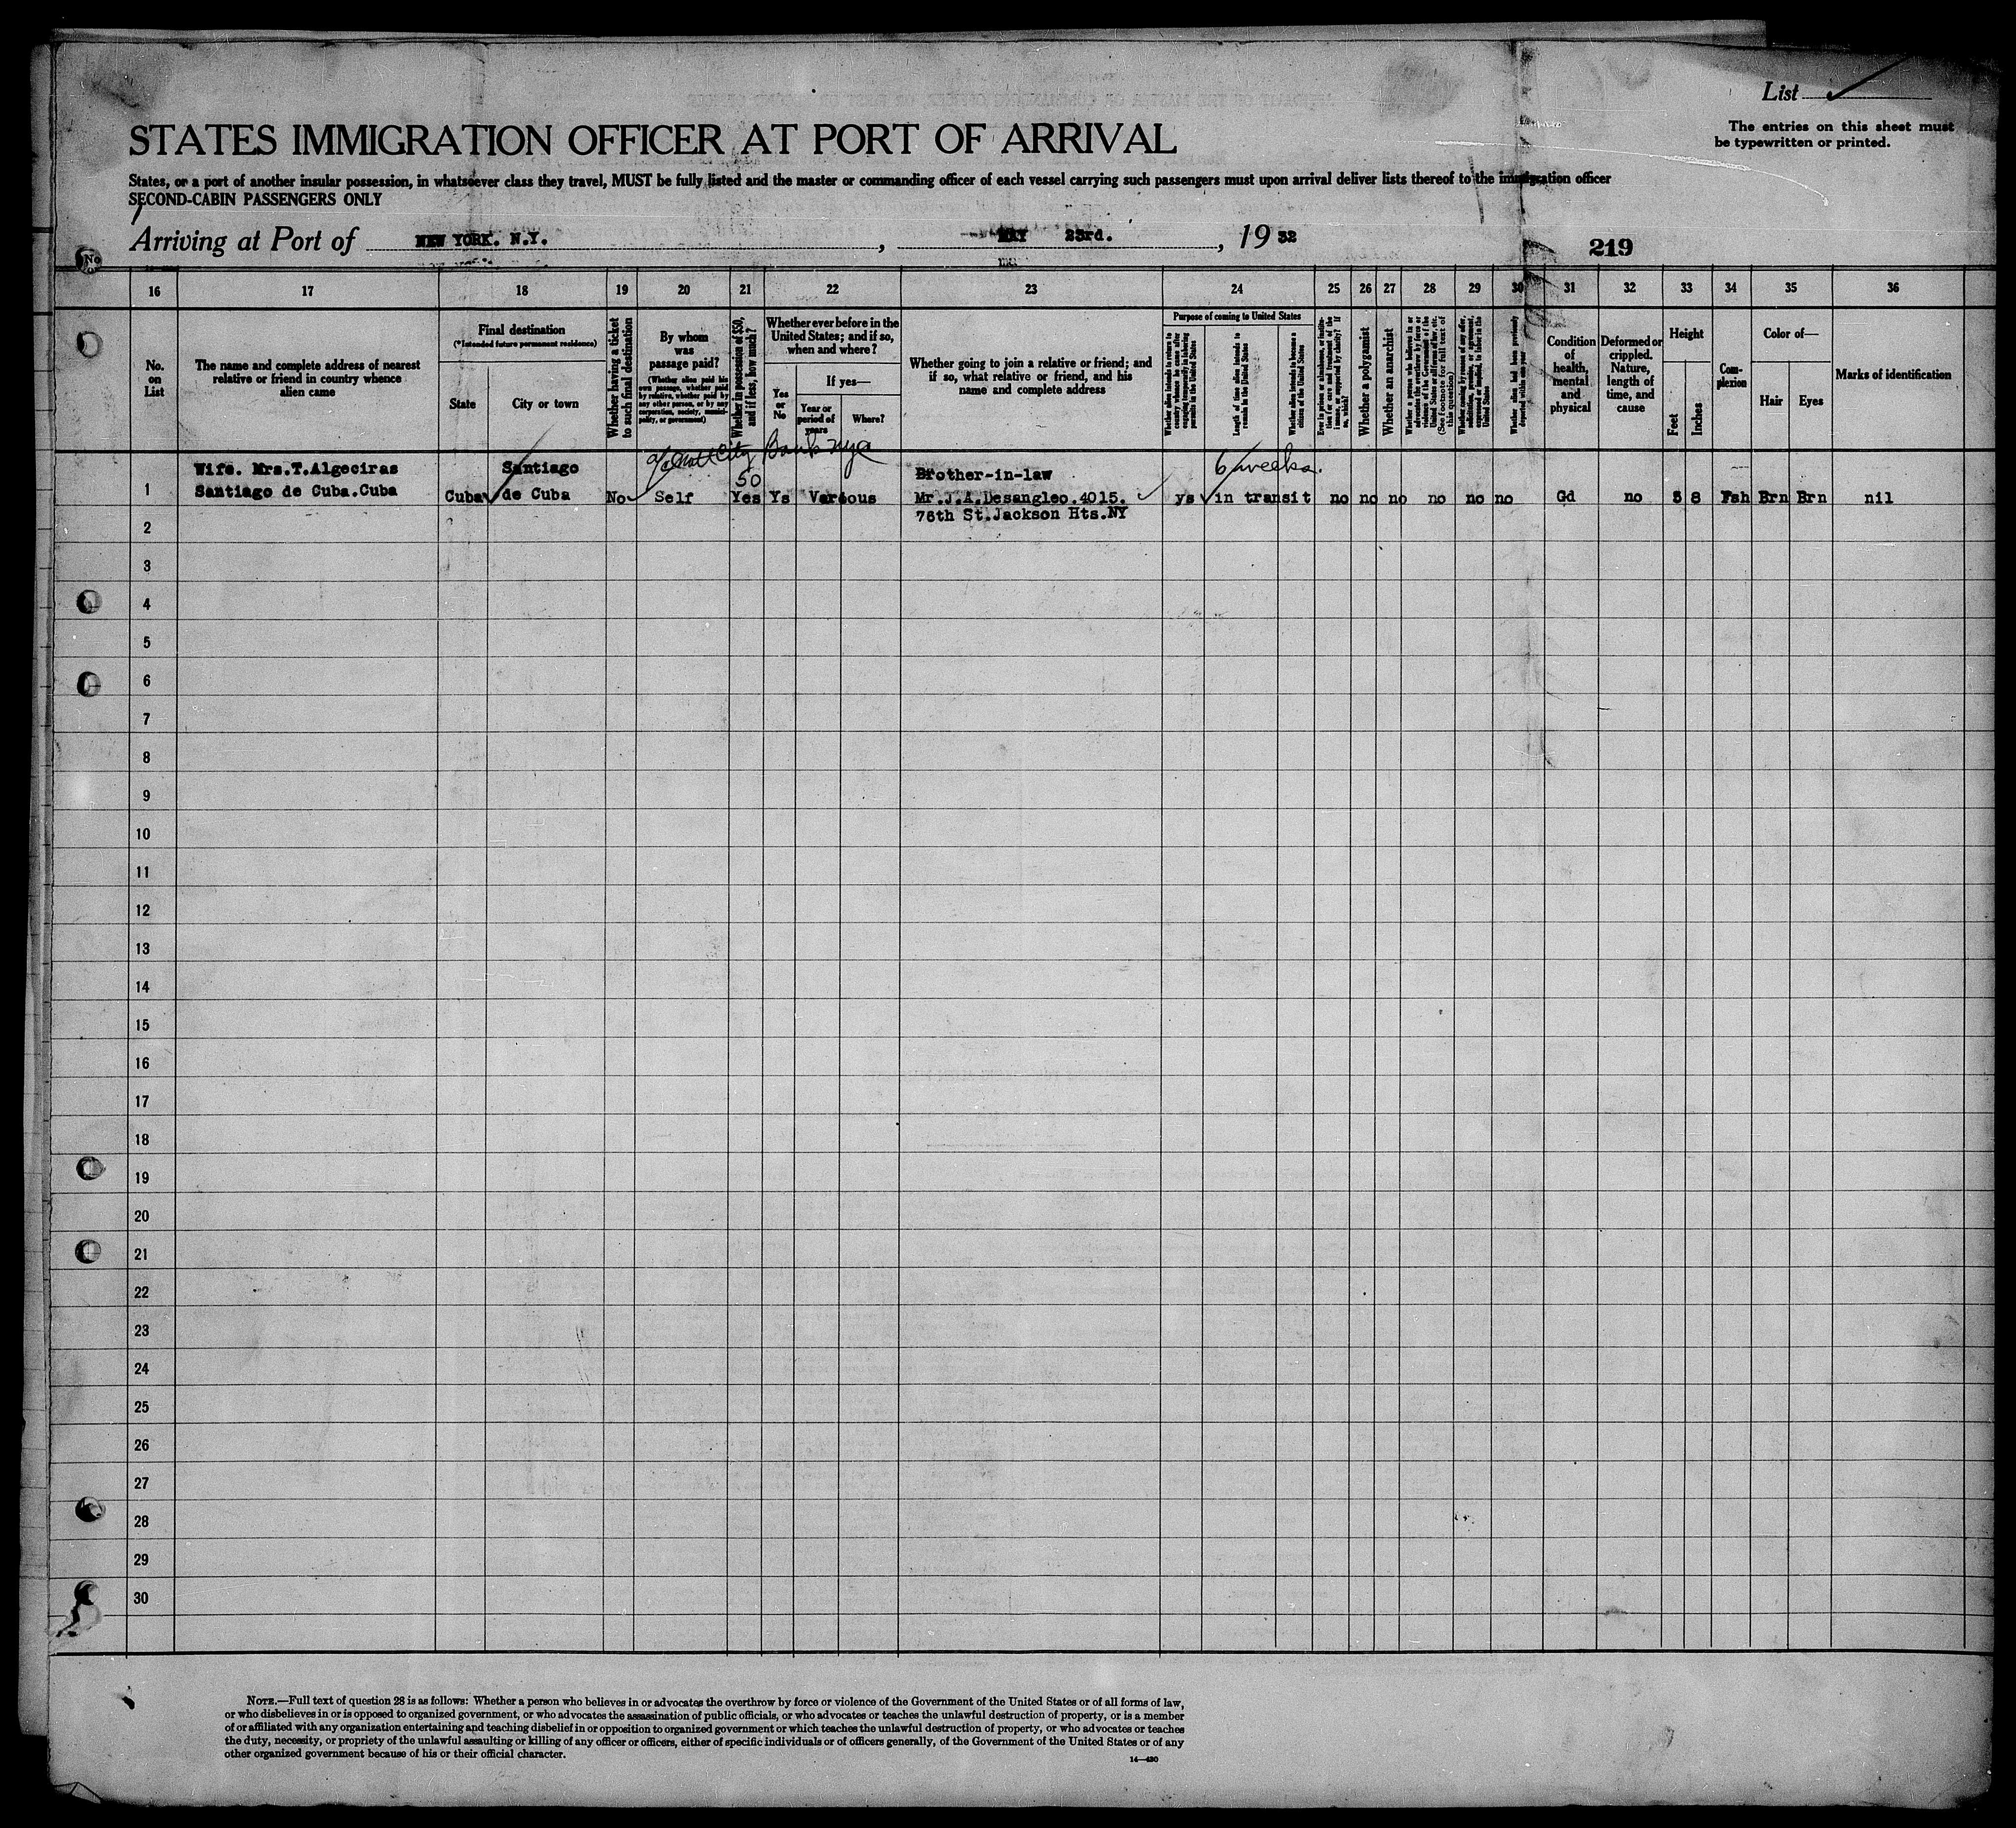 List
The entries on this sheet must
be typewritten or printed.
STATES IMMIGRATION OFFICER AT PORT OF ARRIVAL
States, or a port of another insular possession, in whatsoever class they travel, MUST be fully listed and the master or commanding officer of each vessel carrying such passengers must upon arrival deliver lists thereof to the immigration officer
SECOND-CABIN PASSENGERS ONLY
Arriving at Port of NEW YORK. N.Y. , MAY 23rd. , 19 32
219
16 17 18 19 20 21 22 23 24 25 26 27 28 29 30 31 32 33 34 35 36
No.
on
List
The name and complete address of nearest
relative or friend in country whence
alien came
Final destination
(*Intended future permanent residence)
State
City or town
Whether having a ticket
to such final destination
By whom
was
passage paid?
(Whether alien paid his
own passage, whether paid
by relative, whether paid by
any other person, or by any
corporation, society, munici-
pality, or government)
Whether in possession of $50,
and if less, how much?
Whether ever before in the
United States; and if so,
when and where?
Yes
or
No
If yes—
Year or
period of
years
Where?
Whether going to join a relative or friend; and
if so, what relative or friend, and his
name and complete address
Purpose of coming to United States
Whether alien intends to return to
country whence he came after
engaging temporarily in laboring
pursuits in the United States
Length of time alien intends to
remain in the United States
Whether alien intends to become a
citizen of the United States
Ever in prison or almshouse, or institu-
tion for care and treatment of the
insane, or supported by charity? If
so, which?
Whether a polygamist
Whether an anarchist
Whether a person who believes in or
advocates the overthrow by force or
violence of the Government of the
United States or all forms of law, etc.
(See footnote for full text of
this question)
Whether coming by reason of any offer,
solicitation, promise, or agreement,
expressed or implied, to labor in the
United States
Whether alien had been previously
deported within one year
Condition
of
health,
mental
and
physical
Deformed or
crippled.
Nature,
length of
time, and
cause
Height
Feet
Inches
Com-
plexion
Color of—
Hair
Eyes
Marks of identification
City Bank
Wife. Mrs.T.Algeciras Santiago 50 Brother-in-law 6 weeks.
1 Santiago de Cuba.Cuba Cuba de Cuba No Self Yes Ys Various Mr.J.A.Desangleo.4015. ys in transit no no no no no no Gd no 5 8 Fsh Brn Brn nil
76th St.Jackson Hts.NY
2
3
4
5
6
7
8
9
10
11
12
13
14
15
16
17
18
19
20
21
22
23
24
25
26
27
28
29
30
NOTE.—Full text of question 28 is as follows: Whether a person who believes in or advocates the overthrow by force or violence of the Government of the United States or of all forms of law,
or who disbelieves in or is opposed to organized government, or who advocates the assassination of public officials, or who advocates or teaches the unlawful destruction of property, or is a member
of or affiliated with any organization entertaining and teaching disbelief in or opposition to organized government or which teaches the unlawful destruction of property, or who advocates or teaches
the duty, necessity, or propriety of the unlawful assaulting or killing of any officer or officers, either of specific individuals or of officers generally, of the Government of the United States or of any
other organized government because of his or their official character.
14—430